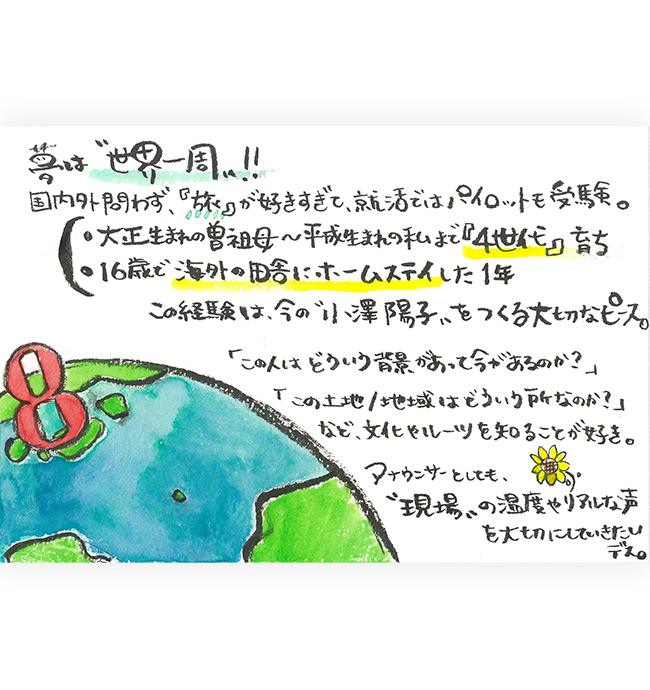 夢は〝世界一周〟!!
国内外問わず、『旅』が好きすぎて、就活ではパイロットも受験。
・大正生まれの曽祖母〜平成生まれの私まで『4世代』育ち
・16歳で海外の田舎にホームステイした1年
この経験は、今の〝小澤陽子〟をつくる大切なピース。
「この人はどういう背景があって今があるのか?」
「この土地/地域はどういう所なのか?」
など、文化やルーツを知ることが好き。
アナウンサーとしても、
〝現場〟の温度やリアルな声
を大切にしていきたい
デス。
8